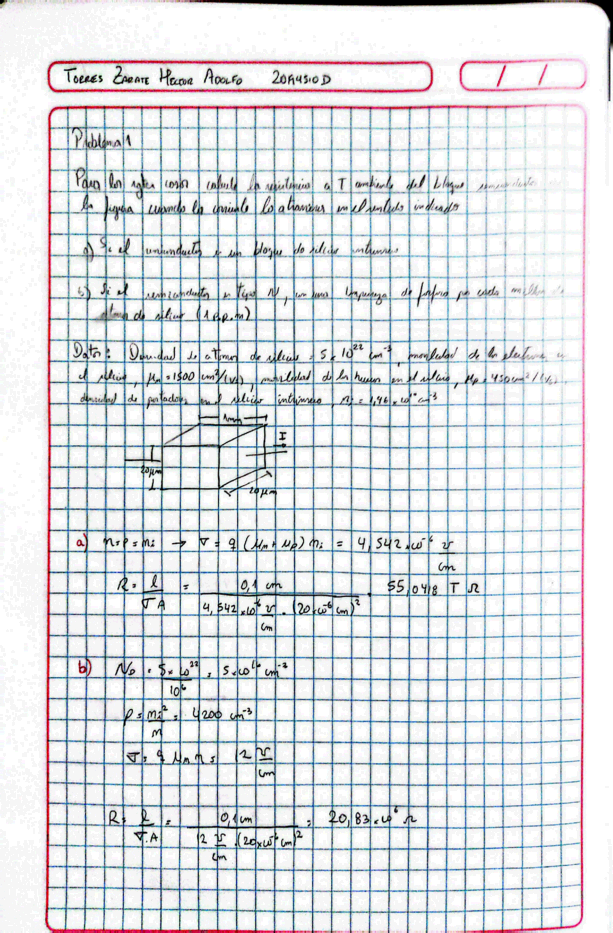 TORRES ZARATE HECTOR ADOLFO 20A4510D
/ /
Problema 1
Para los calcule la resistencia a T ambiente del bloque
la figura cuando la corriente lo atraviesa en el sentido indicado
a) Si el semiconductor es un bloque de silicio intrinseco
b) Si el semiconductor es tipo N, con una impureza de fósforo por cada
de silicio (1 p.p.m)
Datos: Densidad de atomos de silicio = 5 x 10²² cm⁻³, movilidad de los electrones
el silicio, μn = 1500 cm²/(Vs), movilidad de los huecos en el silicio, μp = 450 cm²/(Vs),
densidad de portadores en el silicio intrinseco, ni = 1,46 x 10¹⁰ cm⁻³
1mm
I
20μm
I
20μm
a) n=p=ni → σ = q (μn + μp) ni = 4,542 x 10⁻⁶ ℧/cm
R = l/σA = 0,1 cm / 4,542 x 10⁻⁶ ℧/cm . (20 x 10⁻⁶ cm)² = 55,0418 T Ω
b) ND = 5 x 10²²/10⁶ = 5 x 10¹⁶ cm⁻³
p = ni²/n = 4200 cm⁻³
σ = q μn n = 12 ℧/cm
R = l/σ.A = 0,1 cm / 12 ℧/cm .(20 x 10⁻⁶ cm)² = 20,83 x 10⁶ Ω